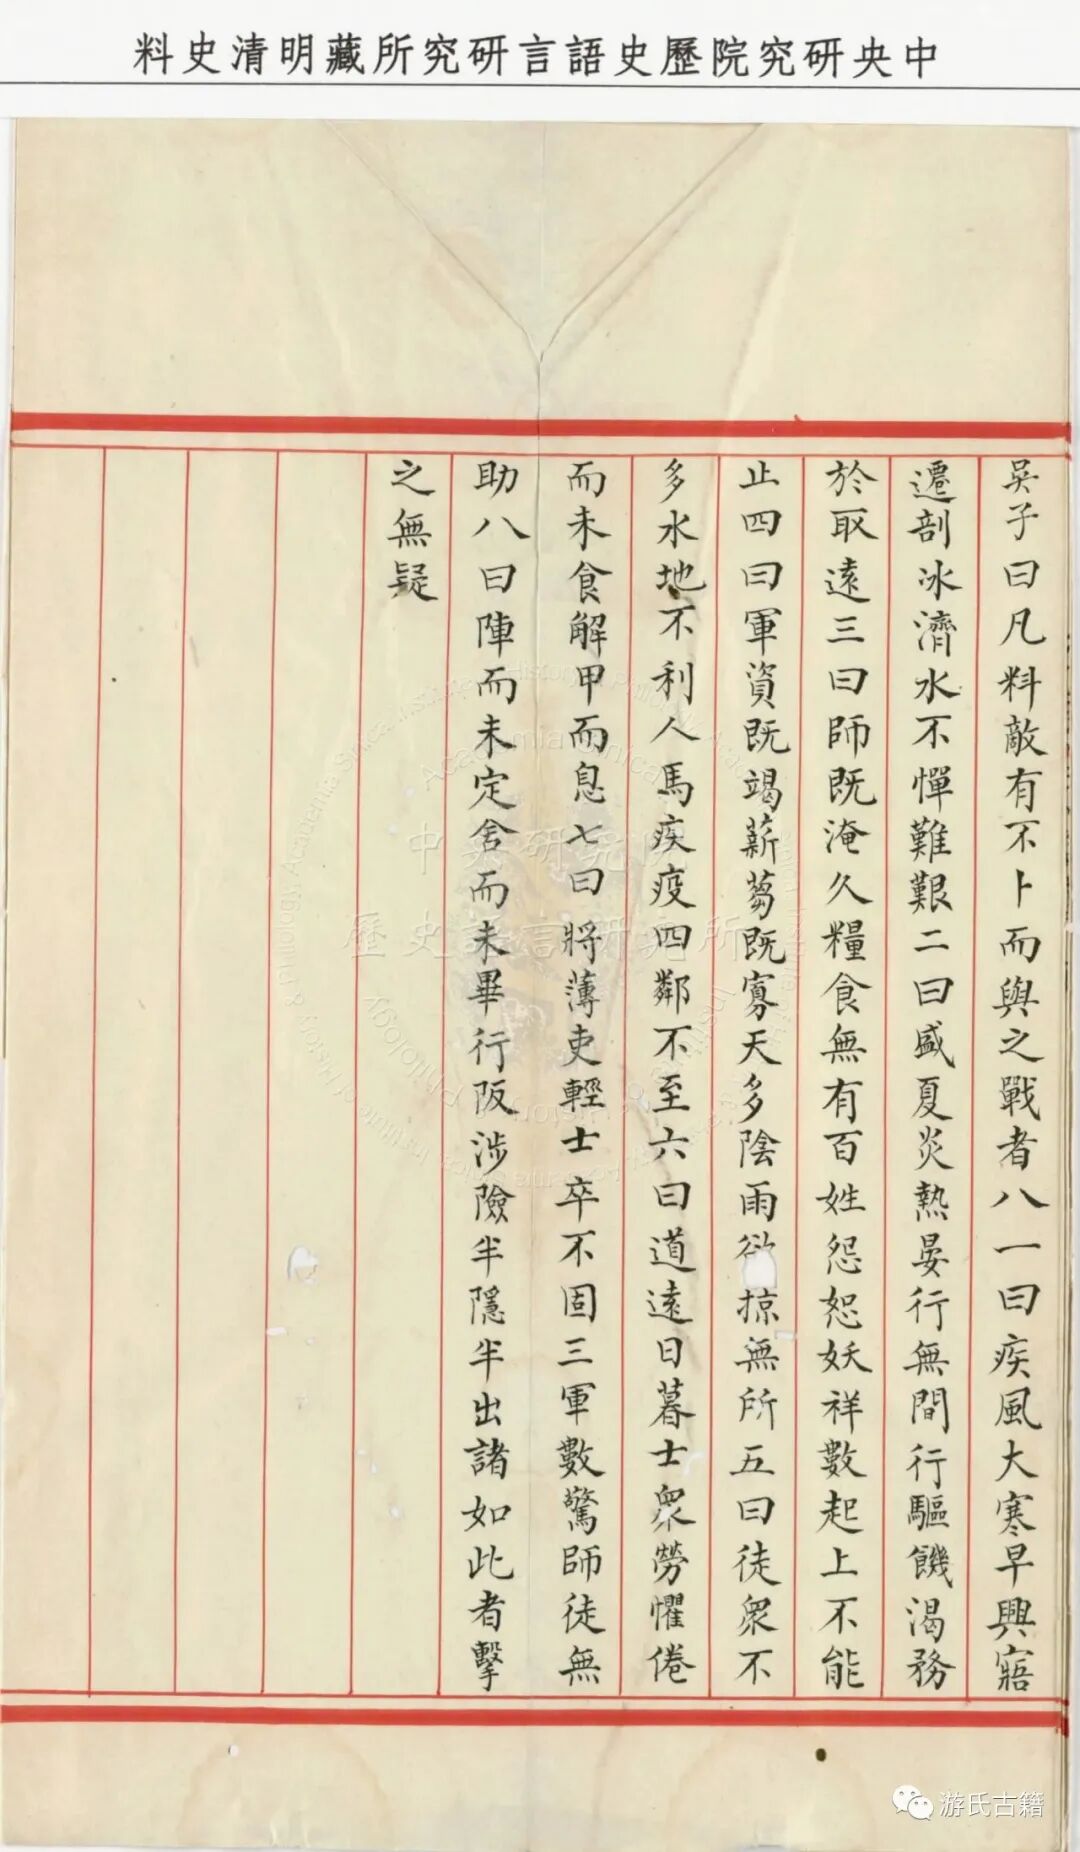 中央研究院歷史語言研究所藏明清史料
吳子曰凡料敵有不卜而與之戰者八一曰疾風大寒早興寤
遷剖冰濟水不憚難艱二曰盛夏炎熱晏行無間行驅饑渴務
於取遠三曰師既淹久糧食無有百姓怨恕妖祥數起上不能
止四曰軍資既竭薪蒭既寡天多陰雨欲掠無所五曰徒衆不
多水地不利人馬疾疫四鄰不至六曰道遠日暮士衆勞懼倦
而未食解甲而息七曰將薄吏輕士卒不固三軍數驚師徒無
助八曰陣而未定舍而未畢行阪涉險半隱半出諸如此者擊
之無疑
中央研究院
歷史語言研究所
游氏古籍